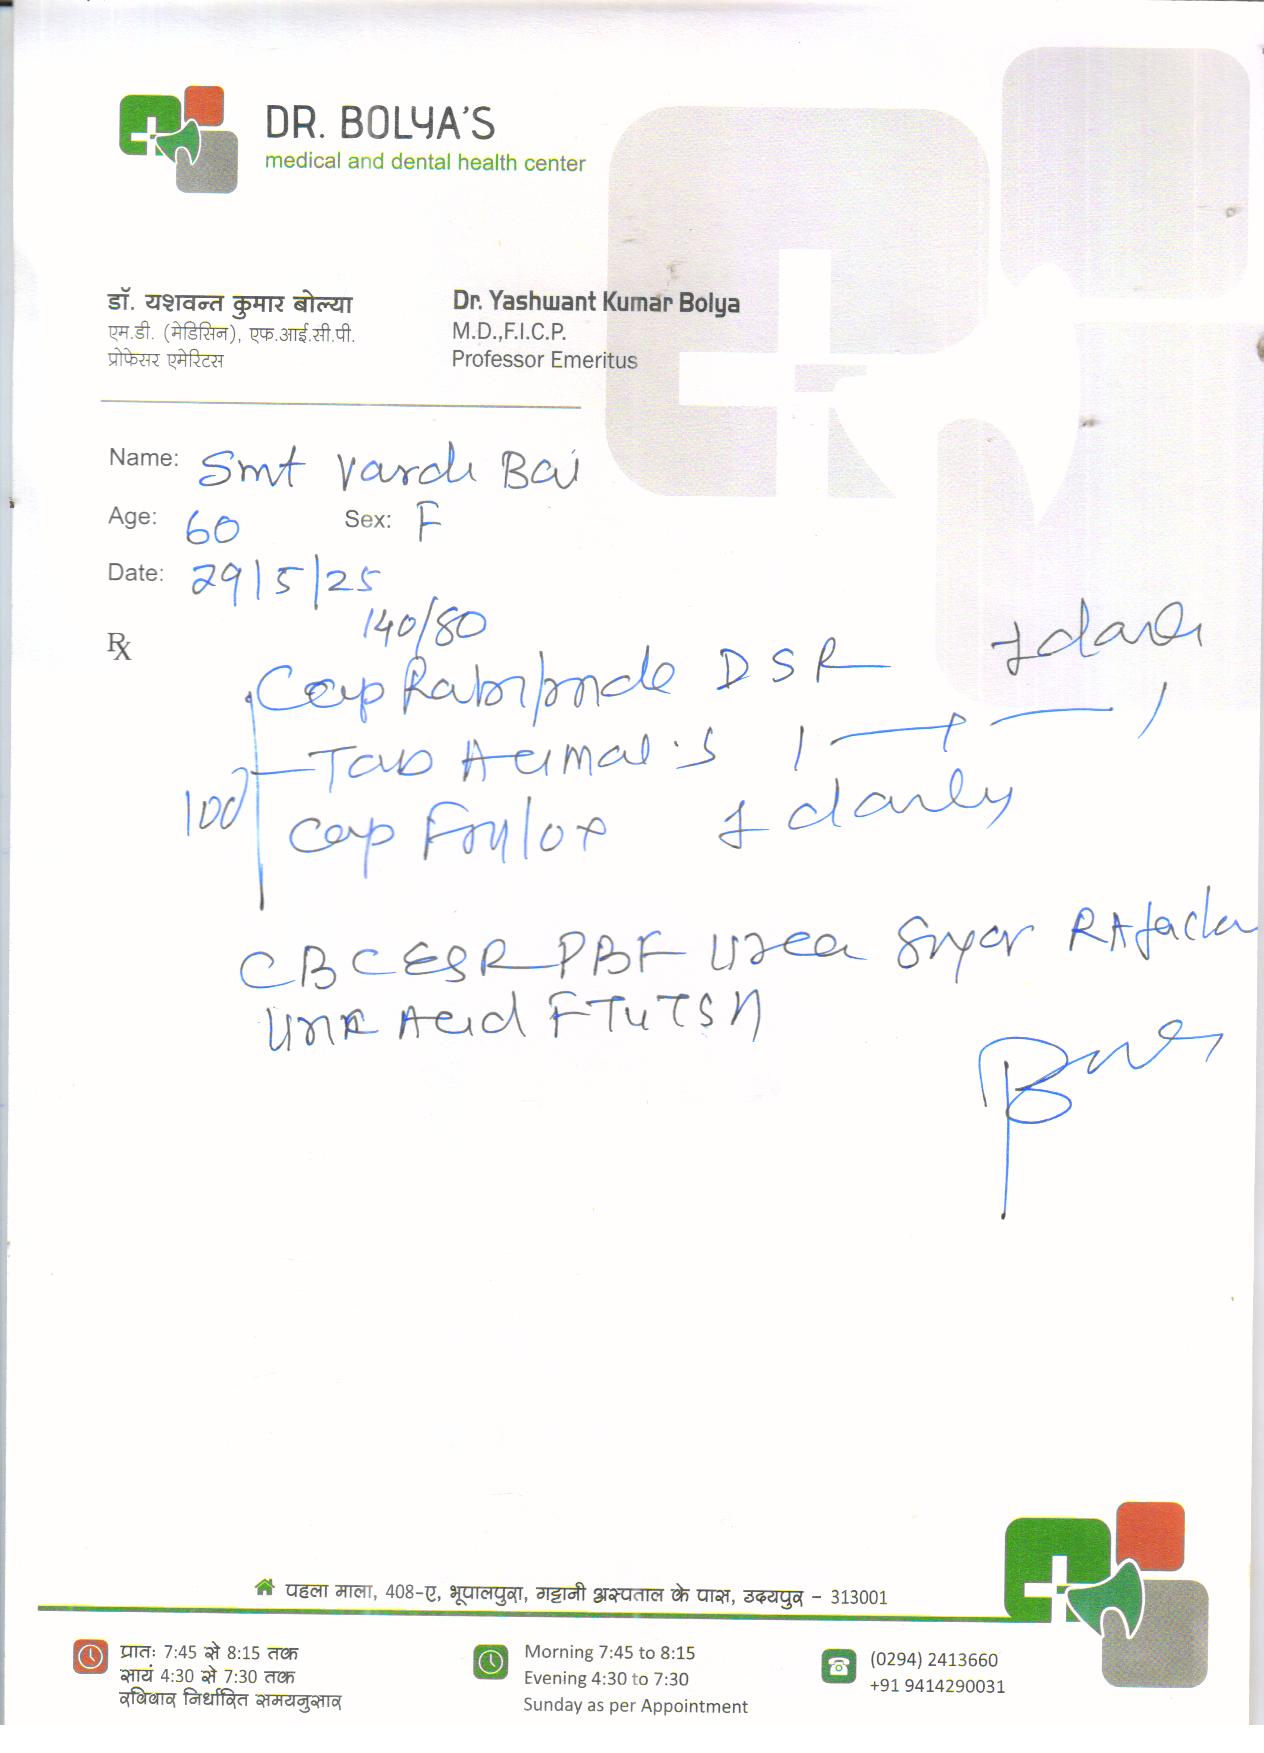 DR. BOLYA'S
medical and dental health center
डॉ. यशवन्त कुमार बोल्या
एम.डी. (मेडिसिन), एफ.आई.सी.पी.
प्रोफेसर एमेरिटस
Dr. Yashwant Kumar Bolya
M.D.,F.I.C.P.
Professor Emeritus
Name: Smt Vardi Bai
Age: 60 Sex: F
Date: 29/5/25
140/80
Rx
Cap DSR 1 daily
Tab 1
Cap 1 daily
CBC ESR PBF Urea Sugar RA factor
Uric Acid
पहला माला, 408-ए, भूपालपुरा, गट्टानी अस्पताल के पास, उदयपुर - 313001
प्रातः 7:45 से 8:15 तक
सायं 4:30 से 7:30 तक
रविवार निर्धारित समयनुसार
Morning 7:45 to 8:15
Evening 4:30 to 7:30
Sunday as per Appointment
(0294) 2413660
+91 9414290031